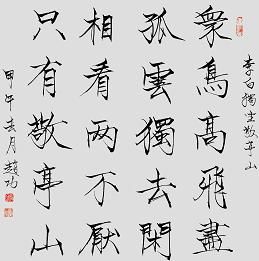 李白獨坐敬亭山
衆鳥高飛盡
孤雲獨去閑
相看两不厭
只有敬亭山
甲午月趙